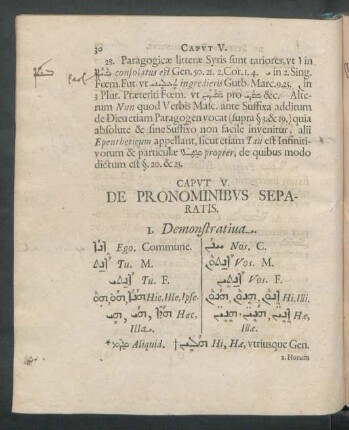 30 CAPVT V.
28. Paragogicæ litteræ Syris sunt rariores, vt ܐ in
consolatus est Gen. 50. 21. 2. Cor. 1. 4. in 2. Sing.
Fœm. Fut. vt ingredieris Gutb. Marc. 9. 25. in
3 Plur. Præteriti Fœm. vt pro &c. Alte-
rum Nun quod Verbis Masc. ante Suffixa additum
de Dieu etiam Paragogen vocat (supra § 3. & 19.) quia
absolute & sine Suffixo non facile invenitur, alii
Epentheticum appellant, sicut etiam Tau est Infiniti-
vorum & particulæ propter, de quibus modo
dictum est §. 20. & 25.
CAPVT V.
DE PRONOMINIBVS SEPA-
RATIS.
I. Demonstratiua.
ܐܢܐ Ego. Commune. ܚܢܢ Nos. C.
ܐܢܬ Tu. M. ܐܢܬܘܢ Vos. M.
ܐܢܬܝ Tu. F. ܐܢܬܝܢ Vos. F.
Hic, Ille, Ipse. Hi, Illi.
Hæc, Hæ,
Illa. Illæ.
Aliquid. † ܗܠܝܢ Hi, Hæ, vtriusque Gen.
2. Horum